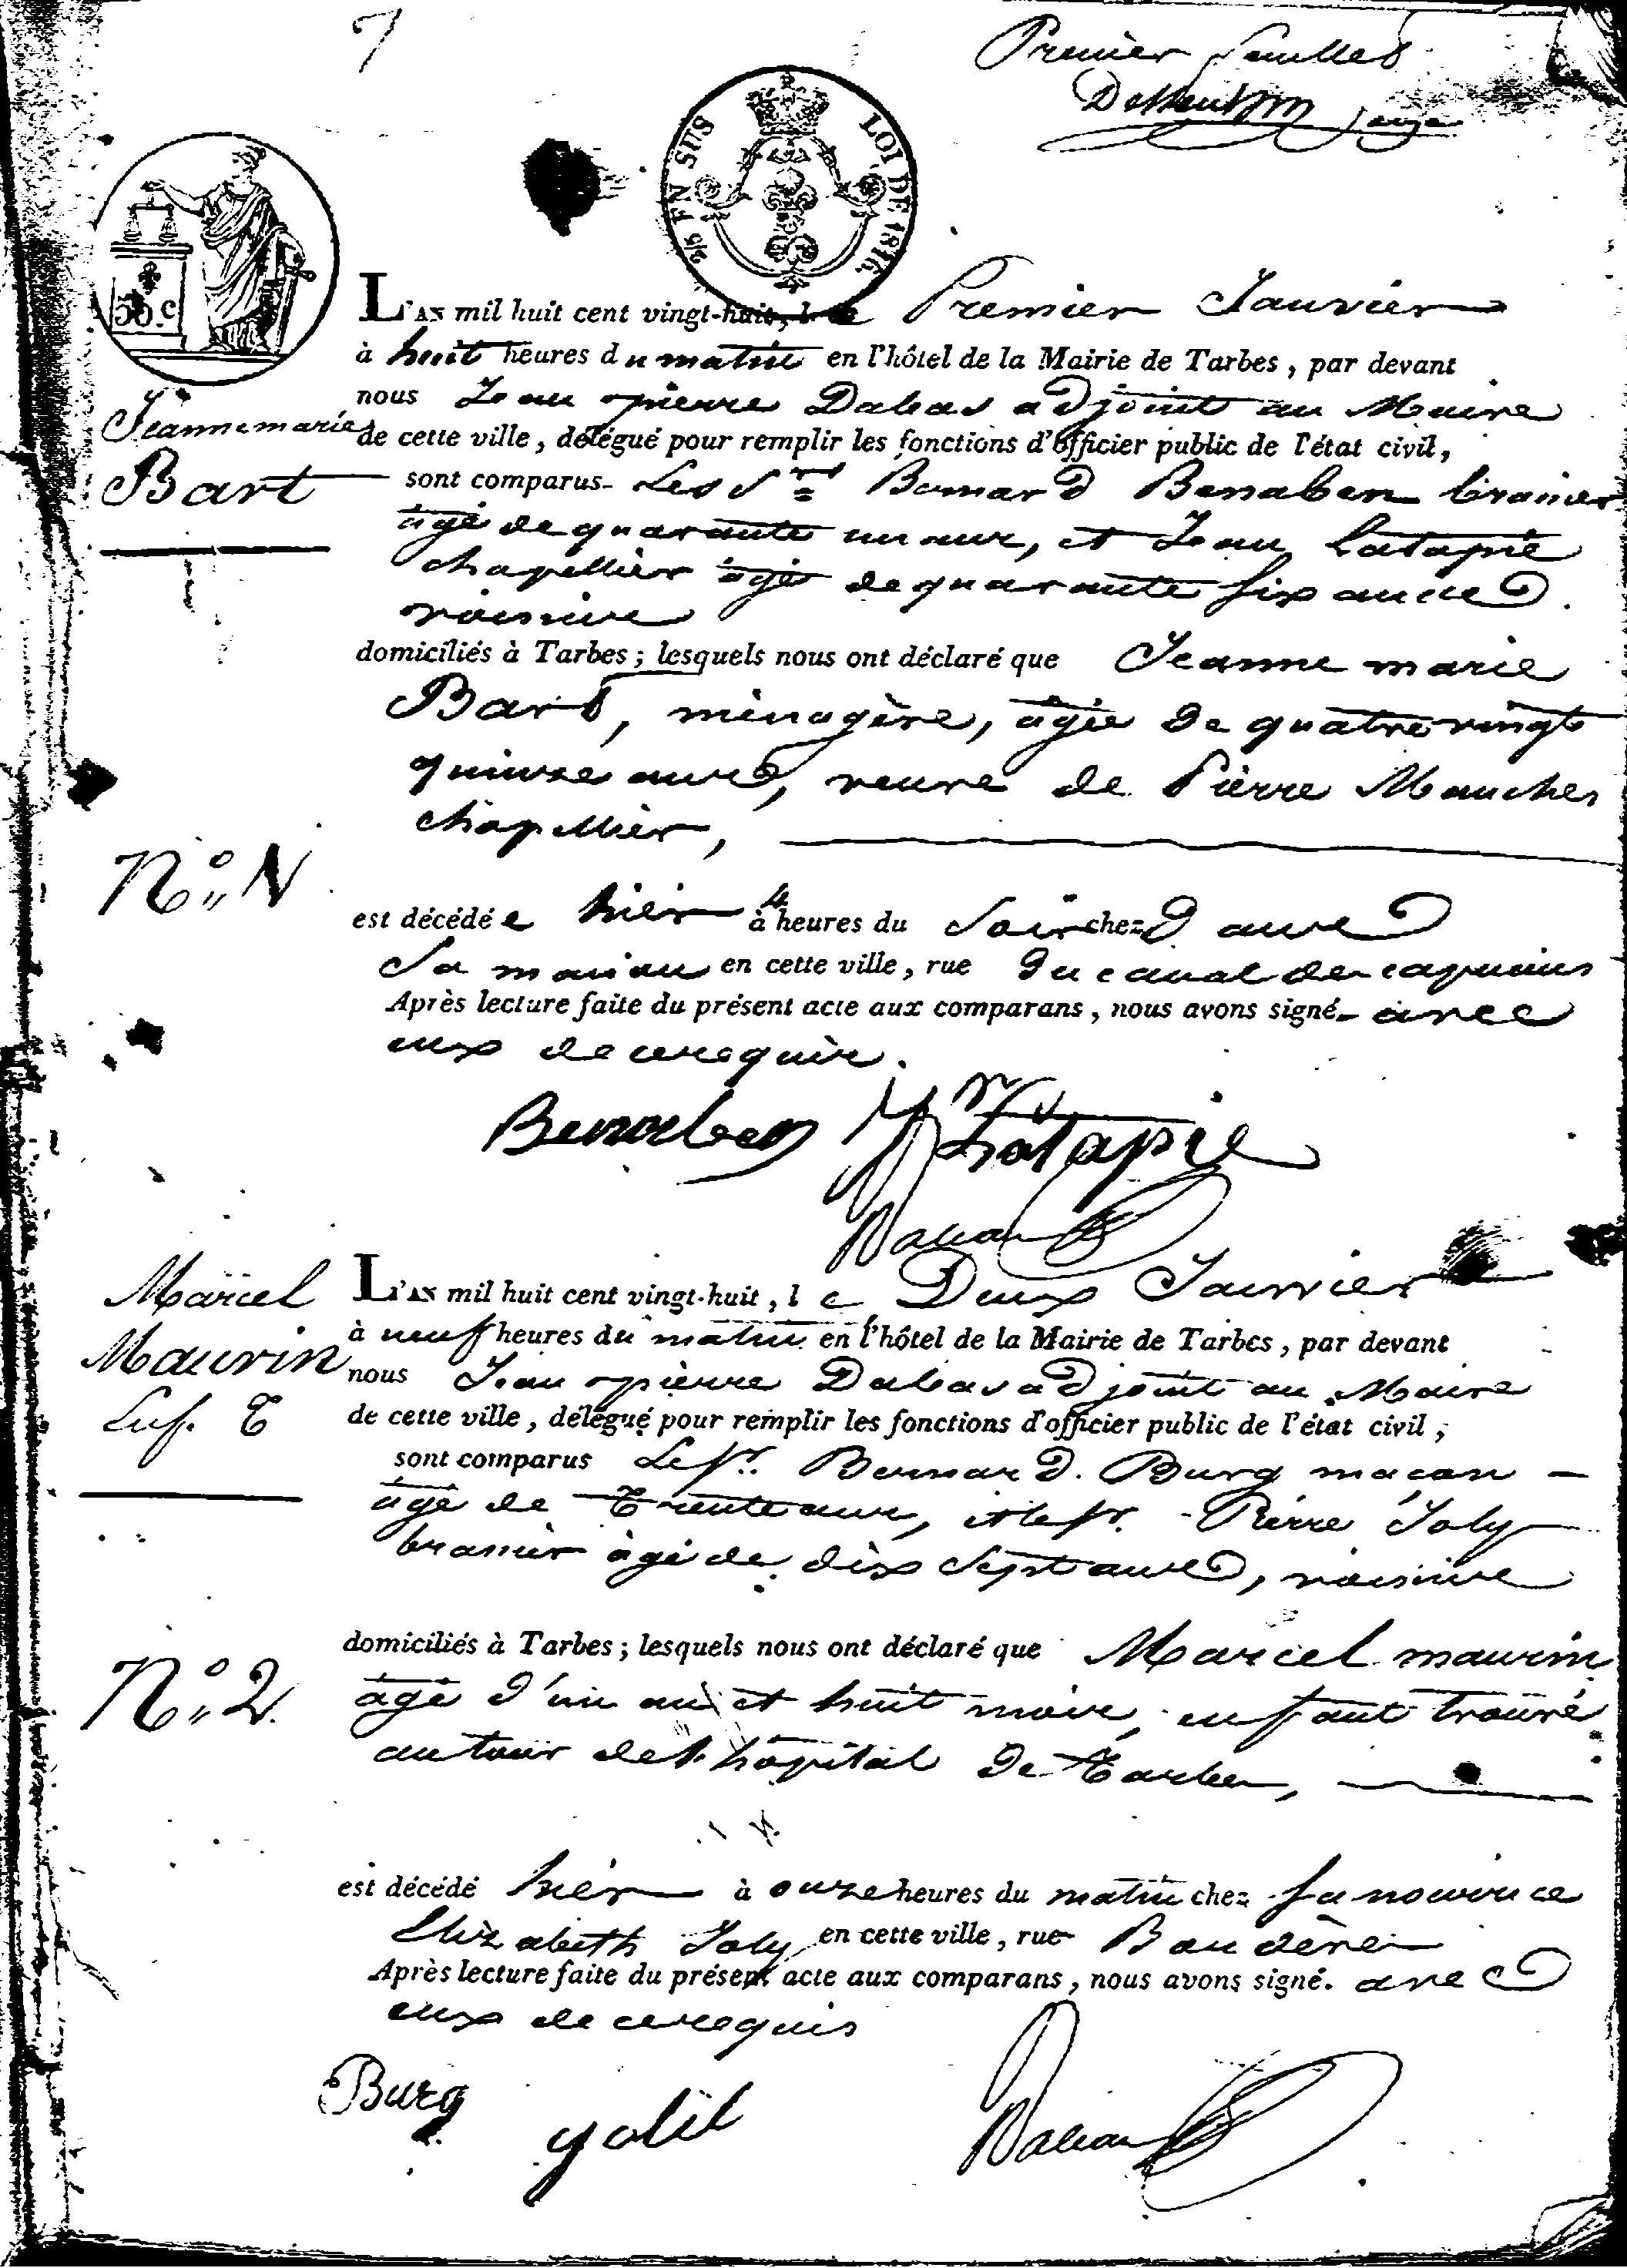 7
Premier feuillet
juge
2/5 EN SUS LOI DE 1816.
50.c
L'AN mil huit cent vingt-huit, le Premier Janvier
à huit heures du matin en l'hôtel de la Mairie de Tarbes, par devant
nous Jean pierre Dabas adjoint au Maire
Jeanne marie
de cette ville, délégué pour remplir les fonctions d'officier public de l'état civil,
Bart
sont comparus Les Srs Bernard Benaben
âgé de quarante un ans, et Jean Latapie
chapellier âgé de quarante six ans
voisins
domiciliés à Tarbes; lesquels nous ont déclaré que Jeanne marie
Bart, ménagère, âgée de quatre vingt
quinze ans, veuve de Pierre Mouches
chapellier,
N° 1
est décédée hier à 4 heures du Soir chez dans
Sa maison en cette ville, rue du canal des capucins
Après lecture faite du présent acte aux comparans, nous avons signé avec
eux de ce requis.
Benaben Latapie
Dabas
Marcel
L'AN mil huit cent vingt-huit, le Deux Janvier
à neuf heures du matin en l'hôtel de la Mairie de Tarbes, par devant
Maurin
nous Jean pierre Dabas adjoint au Maire
Enf. T
de cette ville, délégué pour remplir les fonctions d'officier public de l'état civil,
sont comparus Le Sr. Bernard Burg maçon
âgé de Trente ans, et le Sr. Pierre Joly
âgé de dix Sept ans, voisins
domiciliés à Tarbes; lesquels nous ont déclaré que Marcel maurin
N° 2.
âgé d'un an et huit mois, enfant trouvé
au tour de l'hôpital de Tarbes,
est décédé hier à onze heures du matin chez sa nourrice
Elizabeth Joly en cette ville, rue
Après lecture faite du présent acte aux comparans, nous avons signé. avec
eux de ce requis
Burg
Dabas